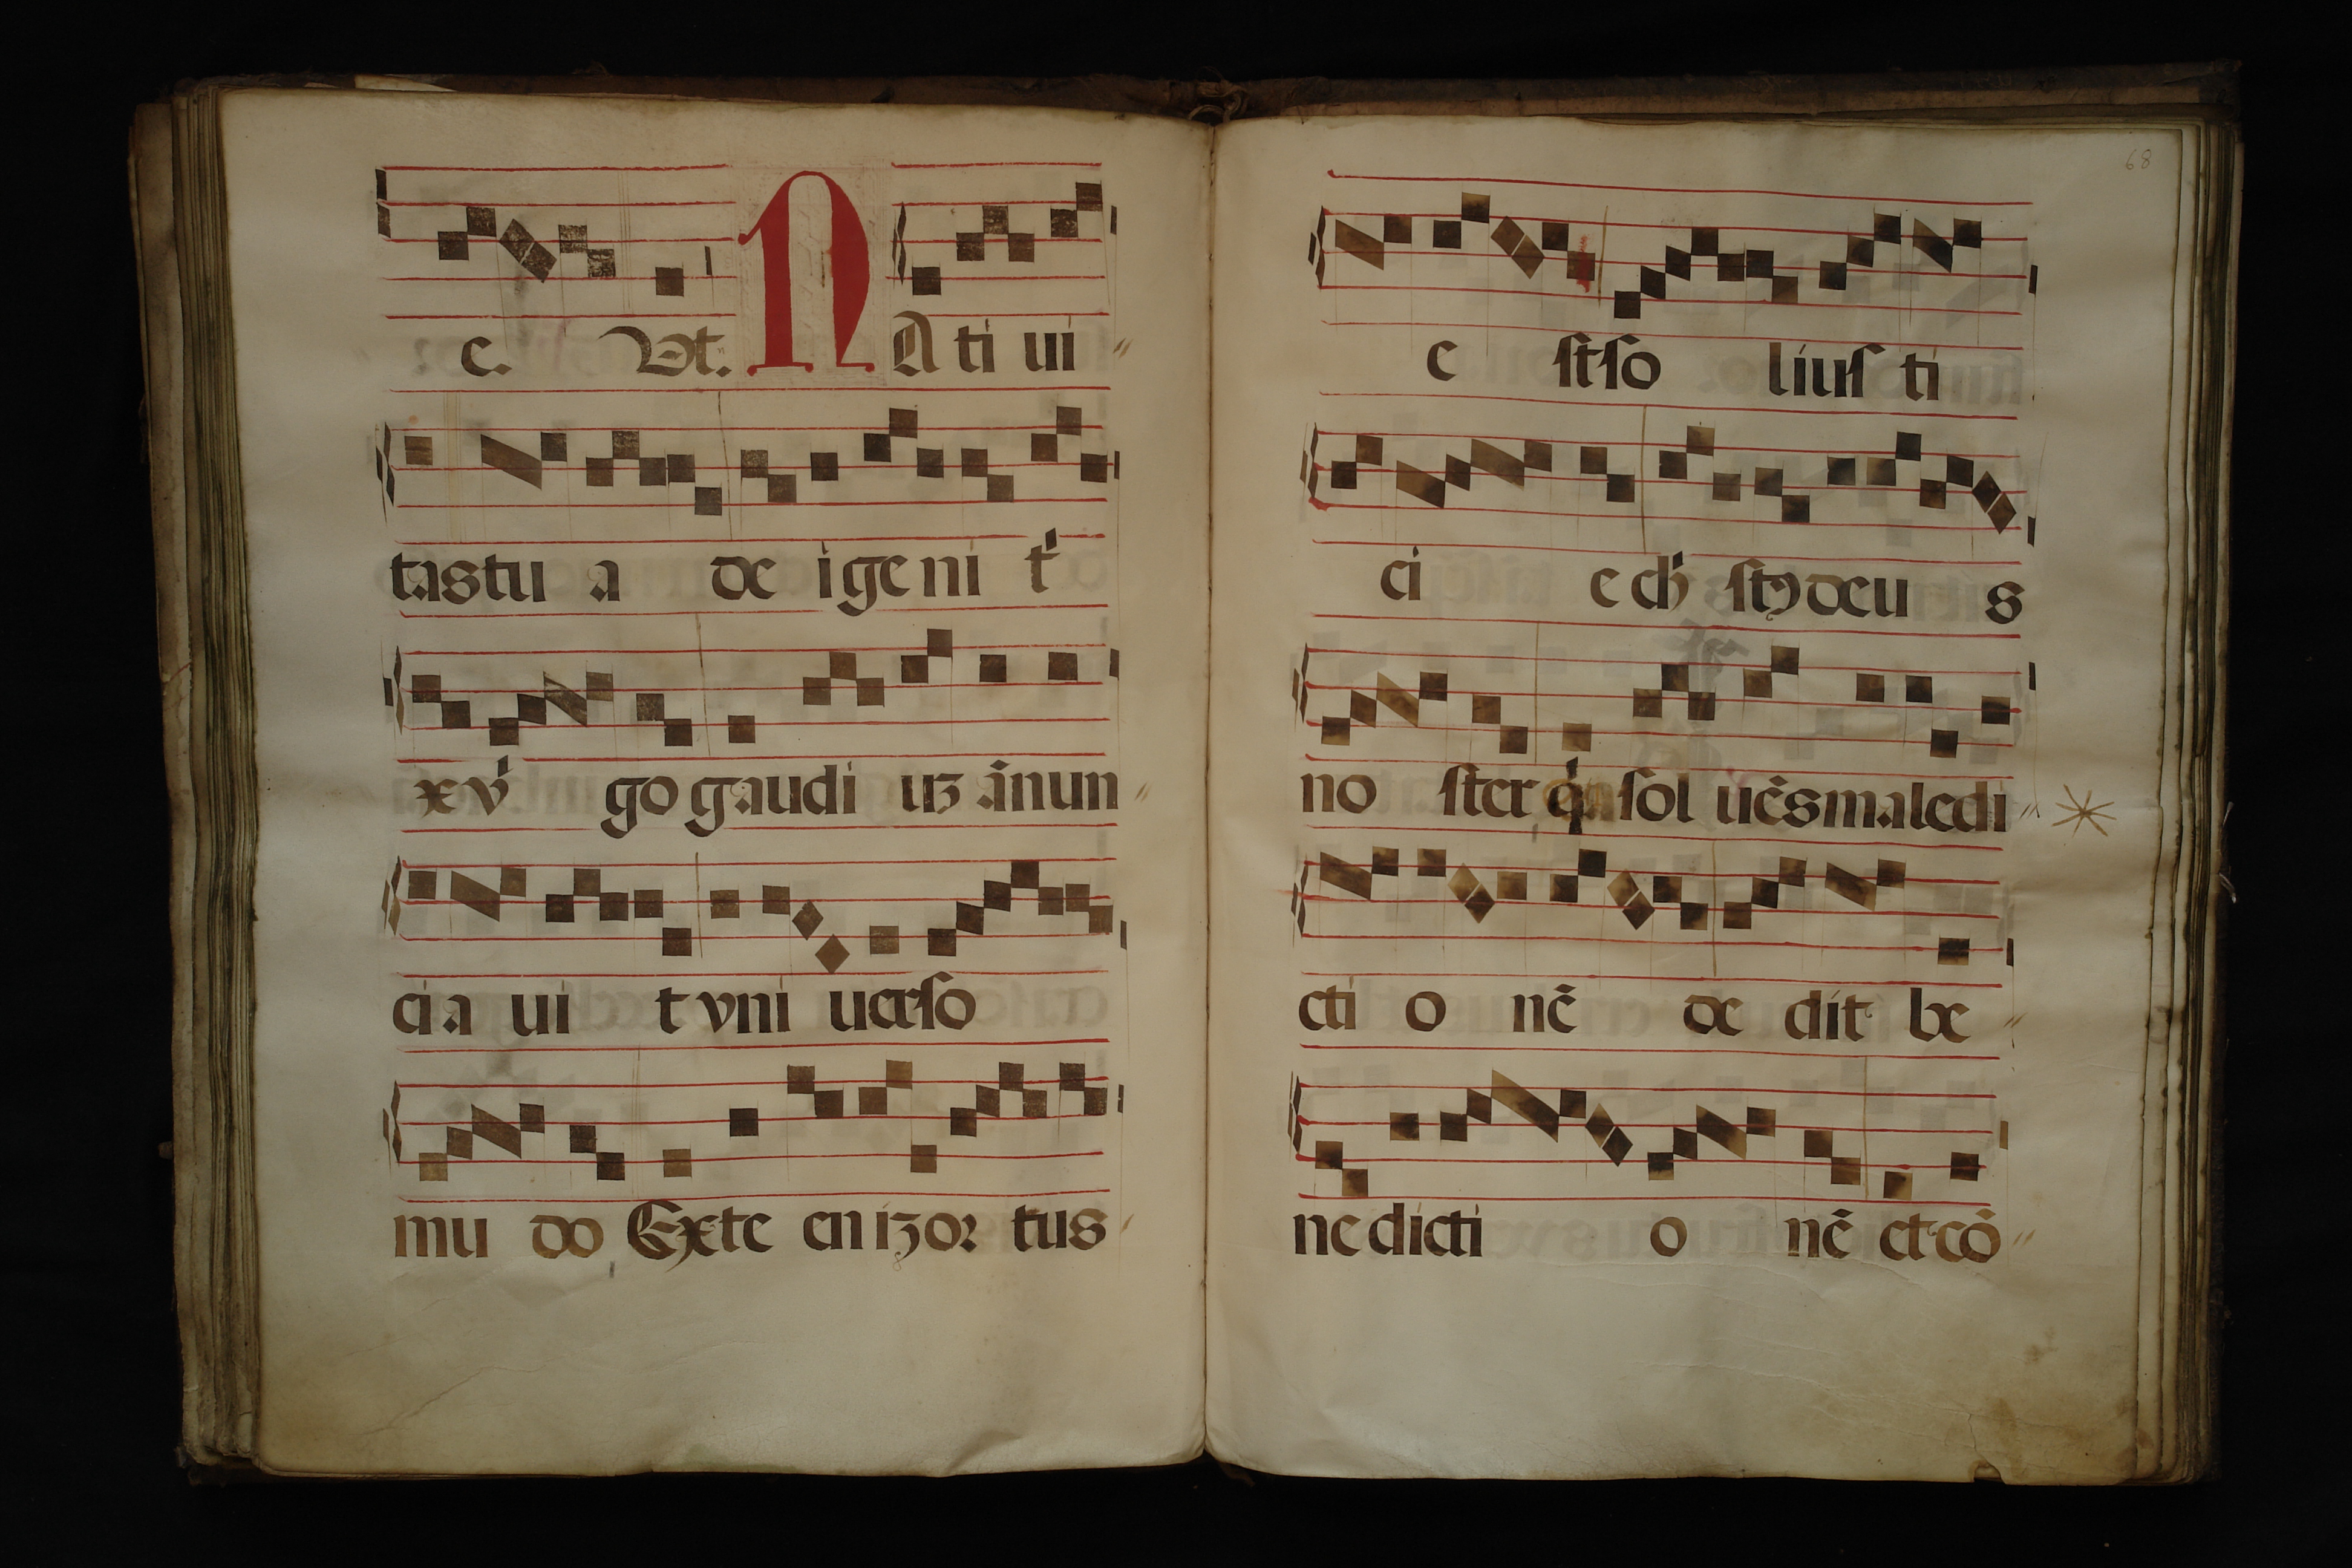 c. Vt. NAti ui
tastu a de igeni t'
xv' go gaudi uʒ ānun
cia ui t vni uerso
mu do Exte enizor tus
68
e stso lius ti
ci e ch' stꝰ deu s
no ster q' sol uēs maledi
cti o nē de dit be
ne dicti o nē et cō